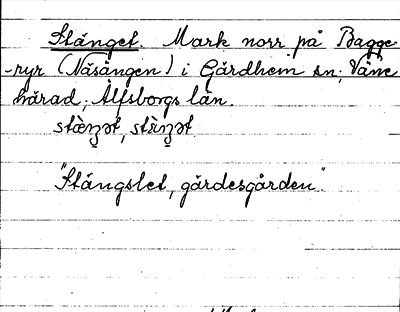 Stänget. Mark norr på Bagge-
-ryr (Näsängen) i Gärdhem sn; Väne
härad; Älfsborgs län.
"Stängslet, gärdesgården".